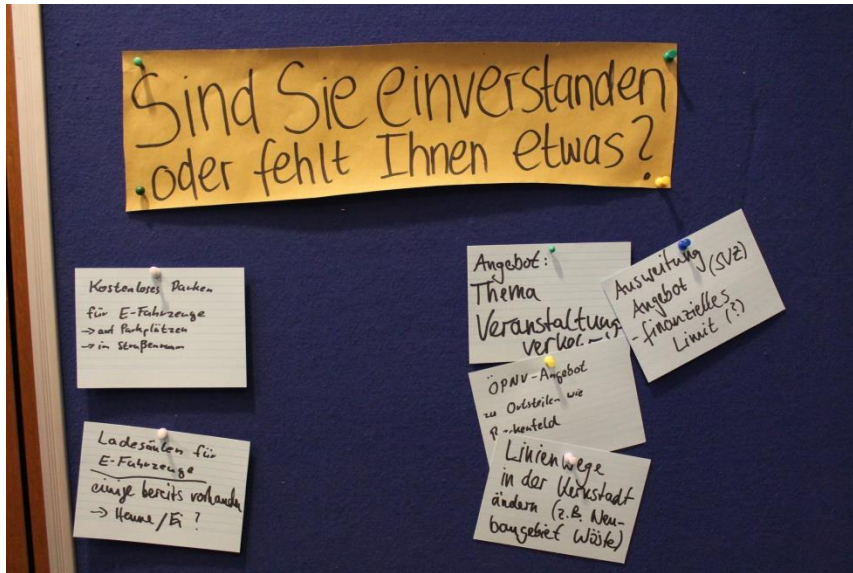 Sind Sie einverstanden
oder fehlt Ihnen etwas?
Kostenloses Parken
für E-Fahrzeuge
→ auf Parkplätzen
→ im Straßenraum
Ladesäulen für
E-Fahrzeuge
einige bereits vorhanden
→ Henne/Ei ?
Angebot:
Thema
Veranstaltung
Ausweitung (SVZ)
Angebot
- finanzielles
Limit (?)
ÖPNV-Angebot
zu Ortsteilen wie
Linienwege
in der Kernstadt
ändern (z.B. Neu-
baugebiet Wöste)